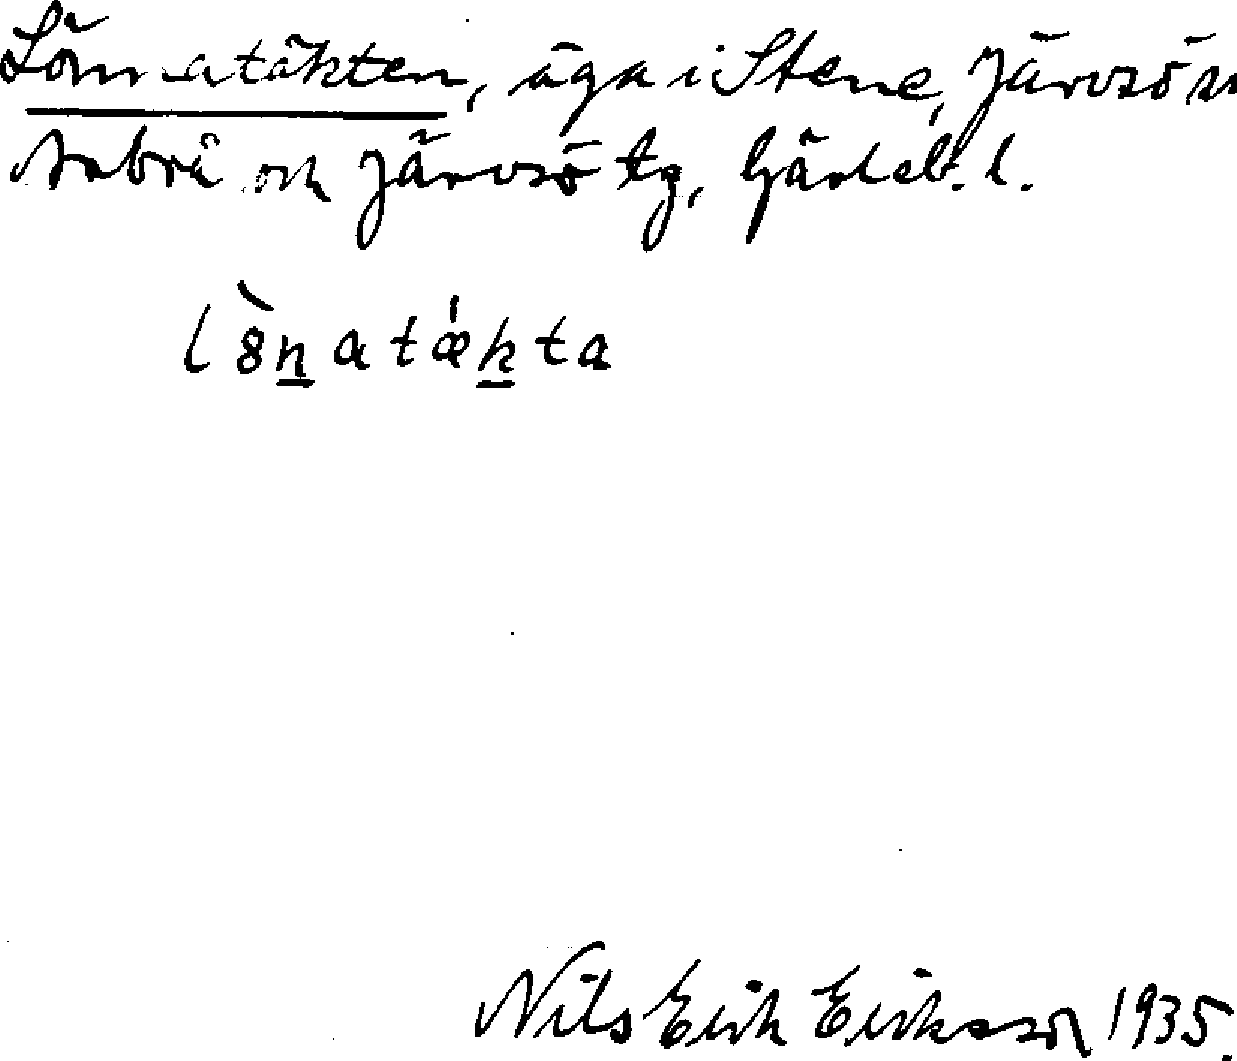 Lönnatäkten, äga i Stene, Järvsö sn
Arbrå och Järvsö tg, Gävleb. l.
l ȣ̀n a t ǽk t a
Nils Erik Eriksson 1935.